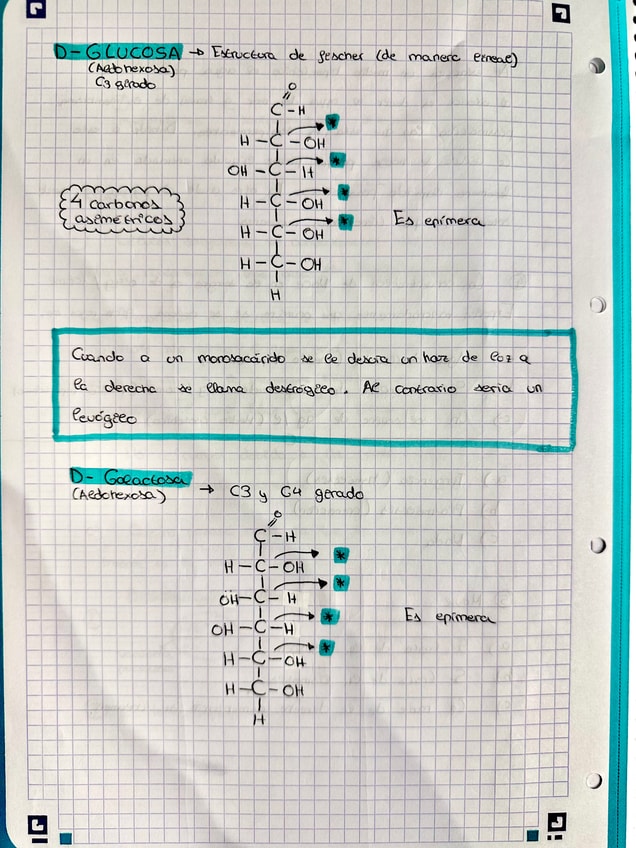 D-GLUCOSA → Estructura de fescher (de manera lineal)
(Aldohexosa)
C3 girado
O
C-H
H-C-OH *
OH-C-H *
4 carbonos
asimétricos
H-C-OH *
H-C-OH *
Es epímera
H-C-OH
H
Cuando a un monosacárido se le desvia un haz de loz a
la derecha se llama destrógilo. Al contrario seria un
levógilo
D-Galactosa
(Aldohexosa) → C3 y C4 girado
O
C-H
H-C-OH *
OH-C-H *
OH-C-H *
Es epímera
H-C-OH *
H-C-OH
H